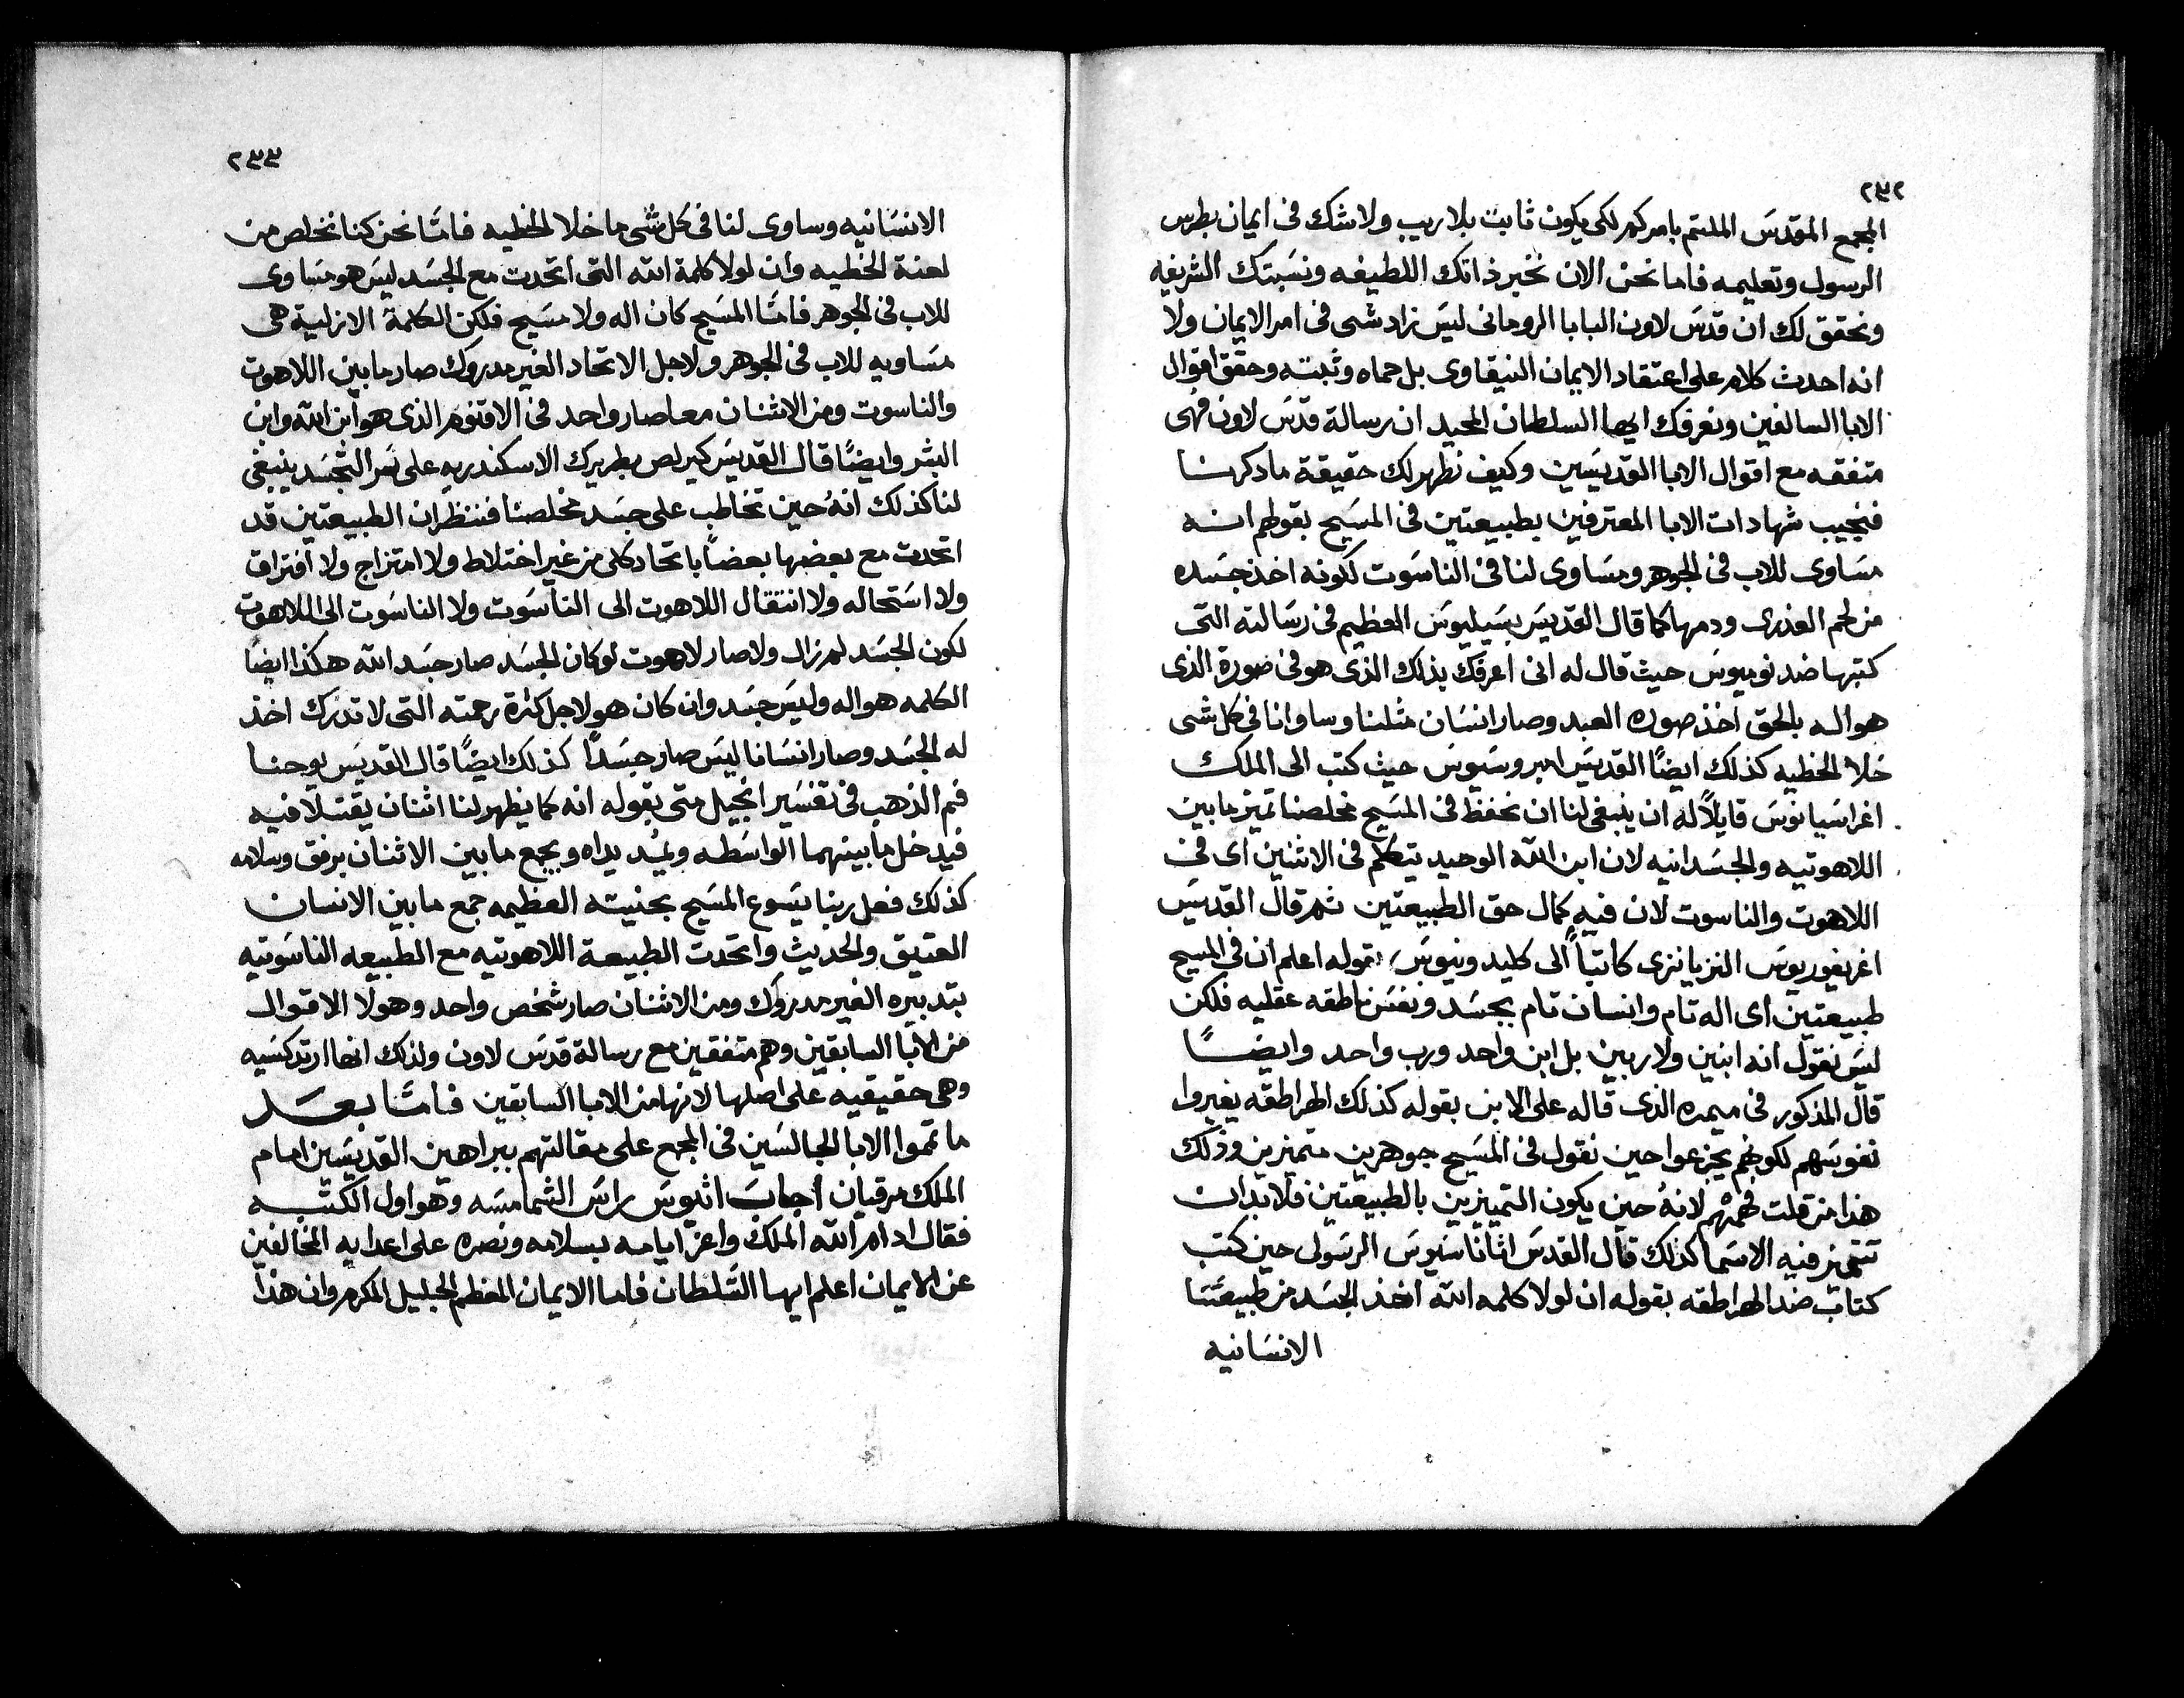 ٢٣٢
المجمع المقدس الملتم بامركم لكى يكون ثابت بلا ريب ولا شك فى ايمان بطرس
الرسول وتعليمه فاما نحن الان نخبر ذاتك اللطيفه ونسبتك الشريفه
ونحقق لك ان قدس لاون البابا الرومانى ليس زاد شى فى امر الايمان ولا
انه احدث كلام على اعتقاد الايمان النيقاوى بل حماه وثبته وحقق اقوال
الابا السالفين ونعرفك ايها السلطان المجيد ان رسالة قدس لاون فهى
متفقه مع اقوال الابا المقديسين وكيف نظهر لك حقيقة ما دكرنا
فنجيب شهادات الابا المعترفين بطبيعتين فى المسيح بقولهم انه
مساوى للاب فى الجوهر ومساوى لنا فى الناسوت لكونه اخذ جسده
من لحم العذرى ودمها كما قال القديس بسيليوس العظيم فى رسالته التى
كتبها ضد نوميوس حيث قال له انى اعرفك بذلك الذى هو فى صورة الذى
هو اله بالحق اخذ صوره العبد وصار انسان مثلنا وساوانا فى كل شى
خلا الخطيه كذلك ايضًا القديس امبروسيوس حيث كتب الى الملك
اغراسيانوس قايلاً له ان ينبغى لنا ان نحفظ فى المسيح مخلصنا تميز ما بين
اللاهوتيه والجسدانيه لان ابن الله الوحيد يتكلم فى الاثنين اى فى
اللاهوت والناسوت لان فيه كمال حق الطبيعتين ثم قال القديس
اغريغوريوس النزيانزى كاتباً الى كليدونيوس بقوله اعلم ان فى المسيح
طبيعتين اى اله تام وانسان تام بجسد ونفس ناطقه عقليه فلكن
ليس نقول انه ابنين ولا ربين بل ابن واحد ورب واحد وايضًا
قال المذكور فى ميمره الذى قاله على الابن بقوله كذلك الهراطقه يغيروا
نفوسهم لكونهم يجزعوا حين نقول فى المسيح جوهرين متميزين وذلك
هذا من قلت فهمهم لانهُ حين يكون التمييزين بالطبيعتين فلا بد ان
تتميز فيه الاسما كذلك قال القدس اثاناسيوس الرسولى حين كتب
كتاب ضد الهراطقه بقوله ان لولا كلمه الله اخذ الجسد من طبيعتنا
الانسانيه
٢٣٣
الانسانيه وساوى لنا فى كل شى ما خلا الخطيه فامّا نحن كنا نخلص من
لعنة الخطيه وان لولا كلمة الله التى اتحدت مع الجسد ليس هو مساوى
للاب فى الجوهر فامّا المسيح كان اله ولا مسيح فلكن الكلمة الازلية هى
مساويه للاب فى الجوهر ولاجل الاتحاد الغير مدروك صار ما بين اللاهوت
والناسوت ومن الاثنان معا صار واحد فى الاقنوم الذى هو ابن الله وابن
البشر وايضًا قال القديس كيرلص بطريرك الاسكندريه على سر التجسد ينبغى
لنا كذلك انهُ حين نخاطب على جسد مخلصنا فننظر ان الطبيعتين قد
اتحدت مع بعضها بعضاً باتحاد كلى من غير اختلاط ولا امتزاج ولا افتراق
ولا استحاله ولا انتقال اللاهوت الى الناسوت ولا الناسوت الى اللاهوت
لكون الجسد لم زال ولا صار لاهوت لو كان الجسد صار جسد الله هكذا ايضًا
الكلمه هو اله وليس جسد وان كان هو لاجل كثرة رحمته التى لا تدرك اخذ
له الجسد وصار انسانا ليس صار جسدًا كذلك ايضًا قال القديس يوحنا
فم الذهب فى تفسير انجيل متى بقوله انه كما يظهر لنا اثنان يقتتلا فيه
فيدخل ما بينهما الواسطه ويمُد يداه ويجمع ما بين الاثنان برفق وسلامه
كذلك فعل ربنا يسوع المسيح بحنيته العظيمه جمع ما بين الانسان
العتيق والحديث واتحدت الطبيعة اللاهوتيه مع الطبيعه الناسوتيه
بتدبيره الغير مدروك ومن الاثنان صار شخص واحد وهولا الاقوال
من الابا السابقين وهم متفقين مع رسالة قدس لاون ولذلك انها ارتدكسيه
وهى حقيقيه على اصلها لانها من الابا السابقين فامّا بعد
ما تموا الابا الجالسين فى المجمع على مقالتهم ببراهين القديسين امام
الملك مرقيان اجاب اثيوس راس الشمامسه وهو اول الكتبه
فقال ادام الله الملك واعز ايامه بسلامه ونصره على اعدايه المخالفين
عن الايمان اعلم ايها السلطان فاما الايمان المعظم الجليل المكرم وان هذا